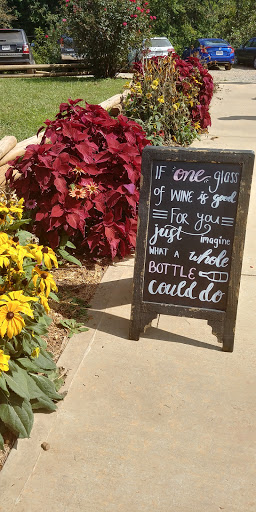 IF one glass
OF WINE is good
FOR YOU
just imagine
WHAT A whole
BOTTLE
COULD DO